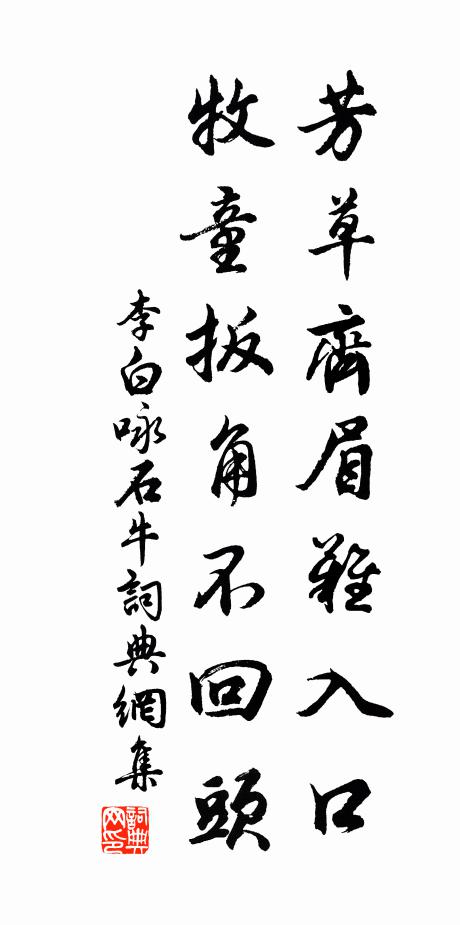 芳草齊眉難入口
牧童扳角不回頭
李白咏石牛詞典網集
詞典网印